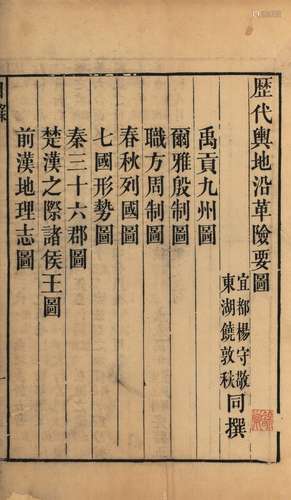 歷代輿地沿革險要圖
宜都楊守敬
東湖饒敦秩
同撰
禹貢九州圖
爾雅殷制圖
職方周制圖
春秋列國圖
七國形勢圖
秦三十六郡圖
楚漢之際諸侯王圖
前漢地理志圖